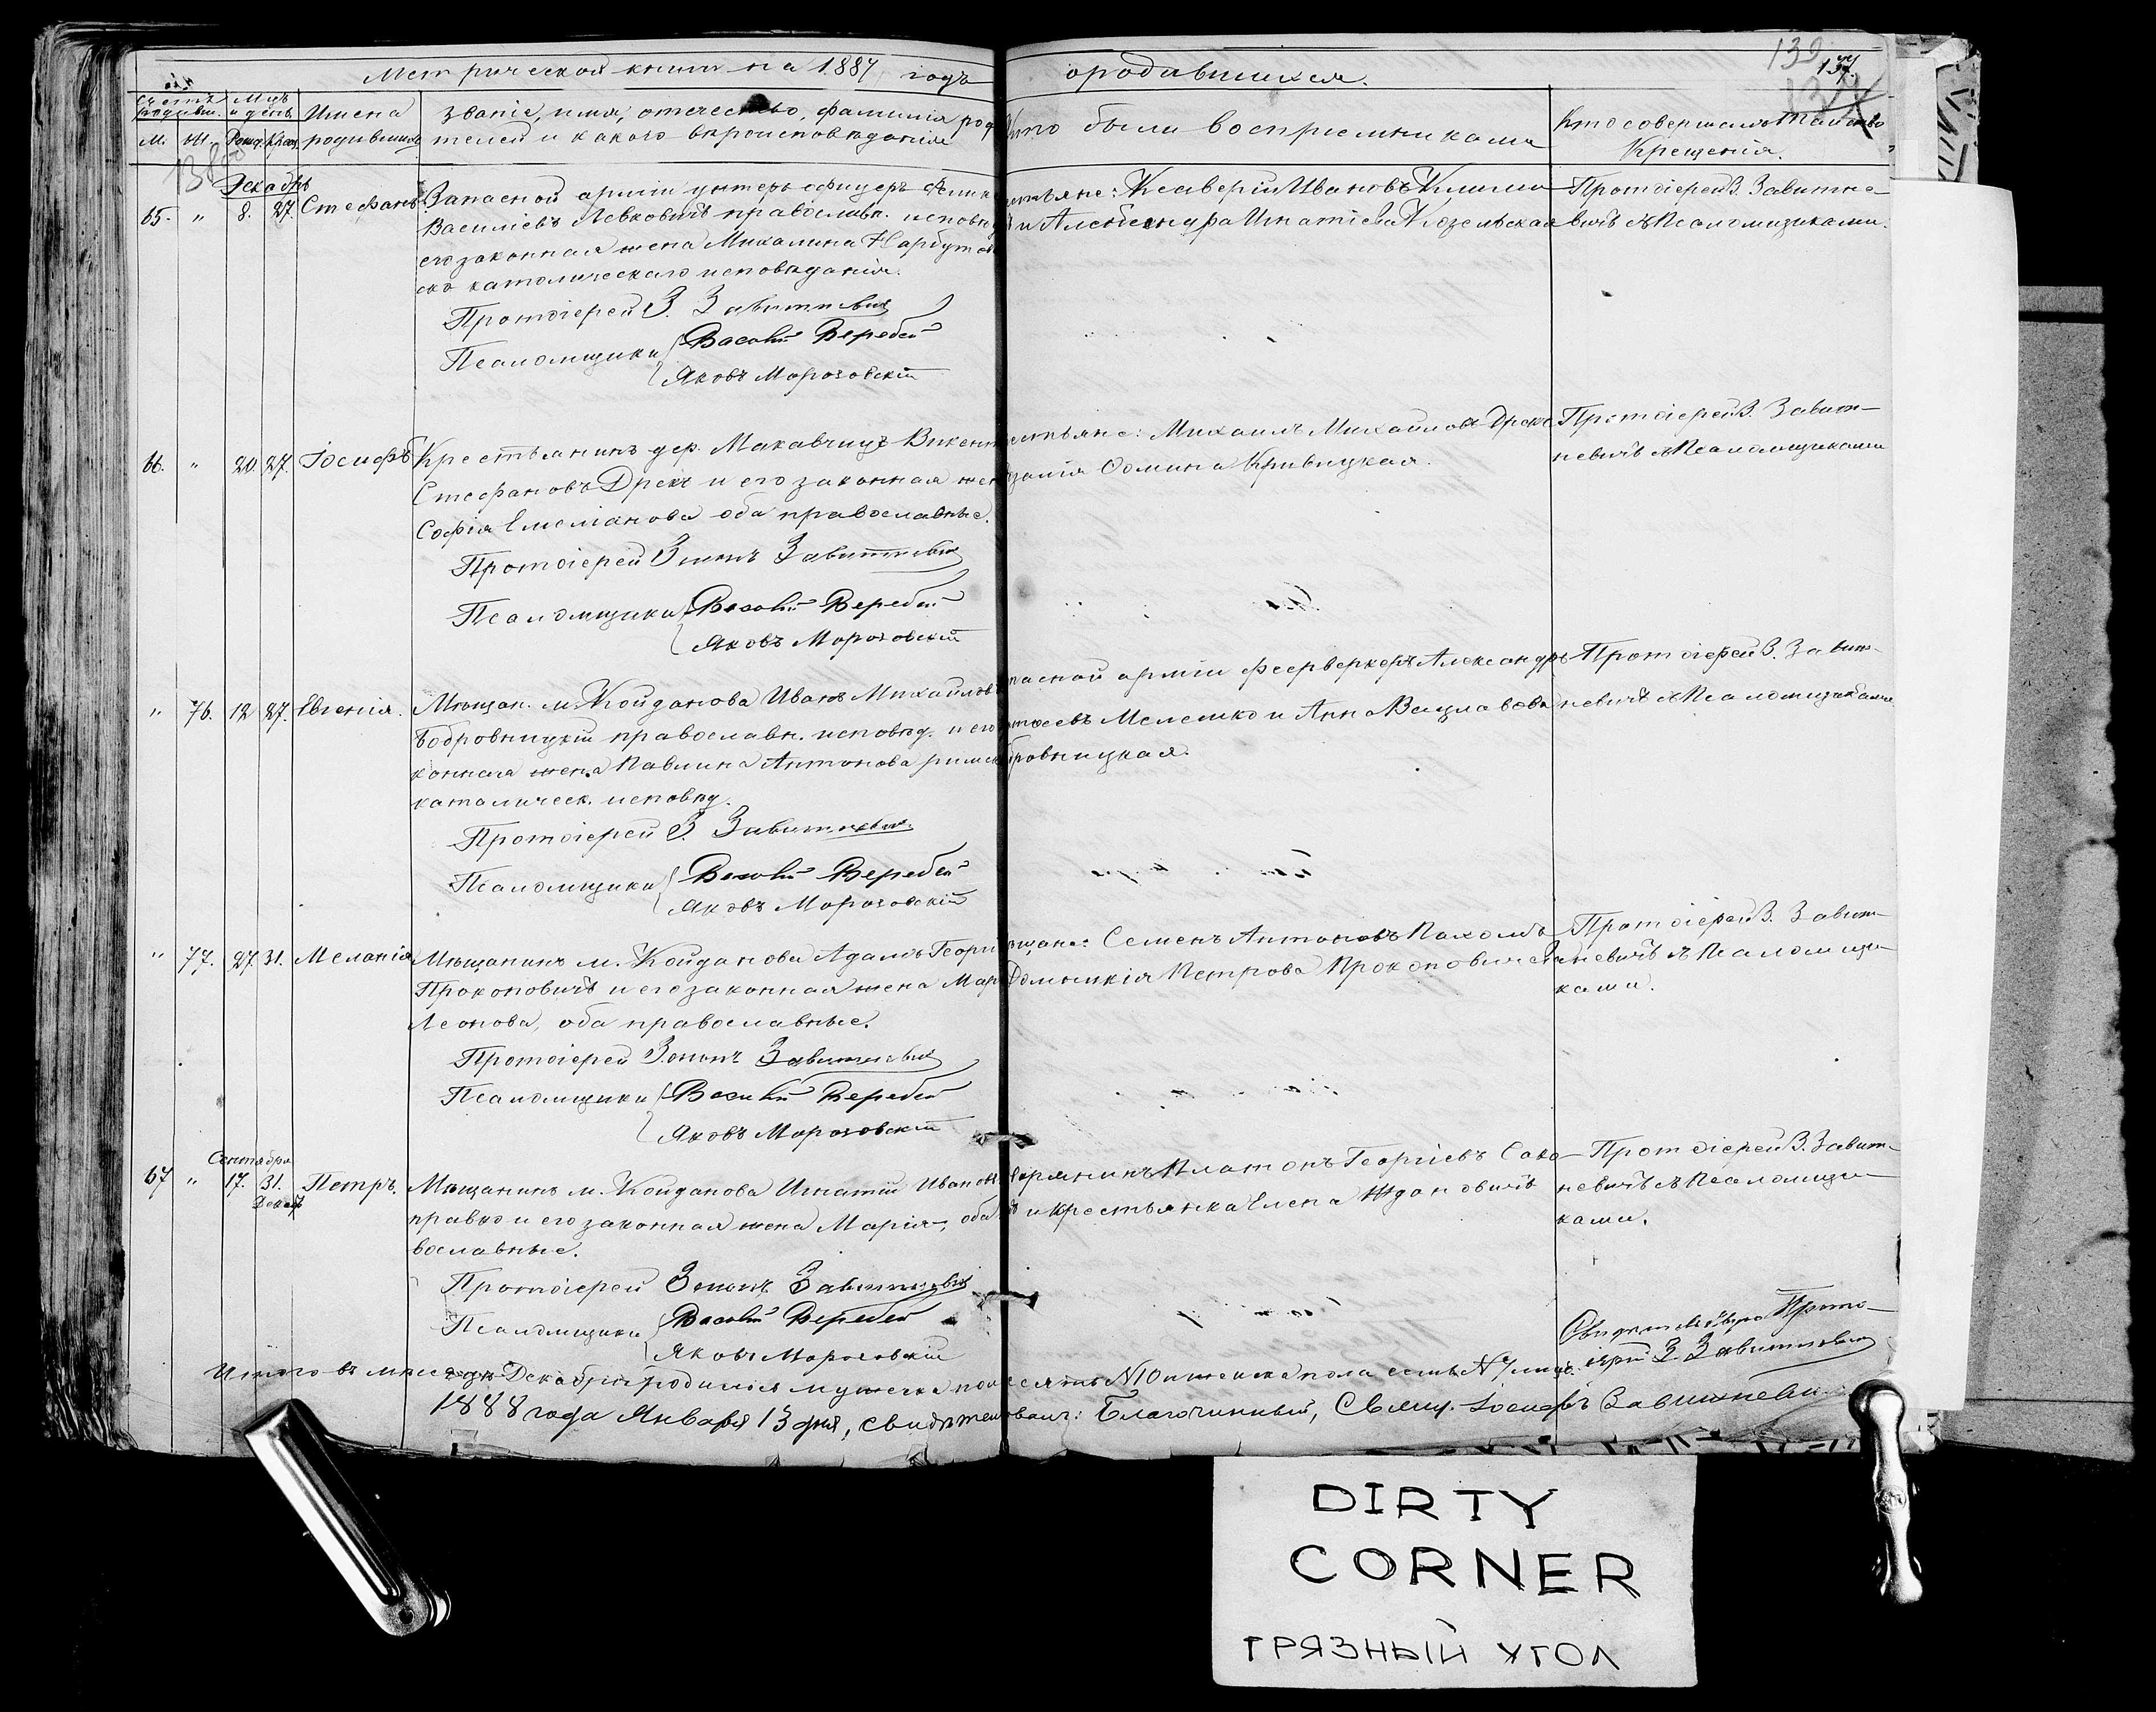 Метрической книги на 1887 годъ
о родившихся.
139
137.
Счетъ родивш.
Мцъ и день
М. Ж. Рожд. Крещ.
Имена
родившихся
Званія, имя, отечество, фамилія род
телей и какого вѣроисповѣданія
Кто были воспріемниками
Кто совершалъ таинство
Крещенія.
138
Декабрь
65. " 8. 27. Стефанъ
Запасной арміи унтеръ офицеръ
Василіевъ Левковичъ православн. исповѣд
его законная жена Михалина Нарбутов
ско католическаго исповѣданія.
Протоіерей З. Завитневич
Псаломщики Василій Веребей
Яковъ Морозовскій
естьяне: Ксаверій Ивановъ Клима
и Александра Игнатіева Козельская
Протоіерей З. Завитне-
вичъ съ Псаломщиками.
66. " 20 27. Іосифъ
Крестьянинъ дер. Макавчицъ Викент
Стефановъ Дрекъ и его законная жен
Софія Емеліанова оба православные.
Протоіерей Зенонъ Завитневич
Псаломщики Василій Веребей
Яковъ Морозовскій
естьяне: Михаилъ Михайловъ Дрекъ
Ѳомина Кривицкая.
Протоіерей З. Завит-
невичъ съ Псаломщиками
" 76. 12 27. Евгенія.
Мѣщан. м. Койданова Иванъ Михайловъ
Бобровницкій православн. исповѣд. и его
конная жена Павлина Антонова римск
католическ. исповѣд.
Протоіерей З. Завитневич
Псаломщики Василій Веребей
Яковъ Морозовскій
пасной арміи феерверкеръ Александръ
Мелешко и Анна Вацлавова
бровницкая.
Протоіерей З. Завит-
невичъ съ Псаломщиками
" 77. 27. 31. Меланія
Мѣщанинъ м. Койданова Адамъ Георгі
Прокоповичъ и его законная жена Мар
Леонова, оба православные.
Протоіерей Зенонъ Завитневич
Псаломщики Василій Веребей
Яковъ Морозовскій
ѣщане: Семенъ Антоновъ Пахом
Домникія Петрова Прокоповичева
Протоіерей З. Завит-
невичъ съ Псаломщи-
ками.
Сентября
67 " 17. 31. Петръ.
Декабр
Мѣщанинъ м. Койданова Игнатій Иванов
и его законная жена Марія, оба
вославные.
Протоіерей Зенонъ Завитневич
Псаломщики Василій Веребей
Яковъ Морозовскій
ворянинъ Платонъ Георгіевъ Сако
и крестьянка Елена Ждановичъ
Протоіерей З. Завит-
невичъ съ Псаломщи-
ками.
Прото-
іерей З. Завитневич
Итого въ мѣсяцѣ Декабрѣ родилось мужеска пол есять N 10 и женска пола семь N 7 лицъ.
1888 года Января 13 дня, свидѣтельствовалъ: Благочинный, Свящ. Іосифъ Завитневич
DIRTY
CORNER
ГРЯЗНЫЙ УГОЛ